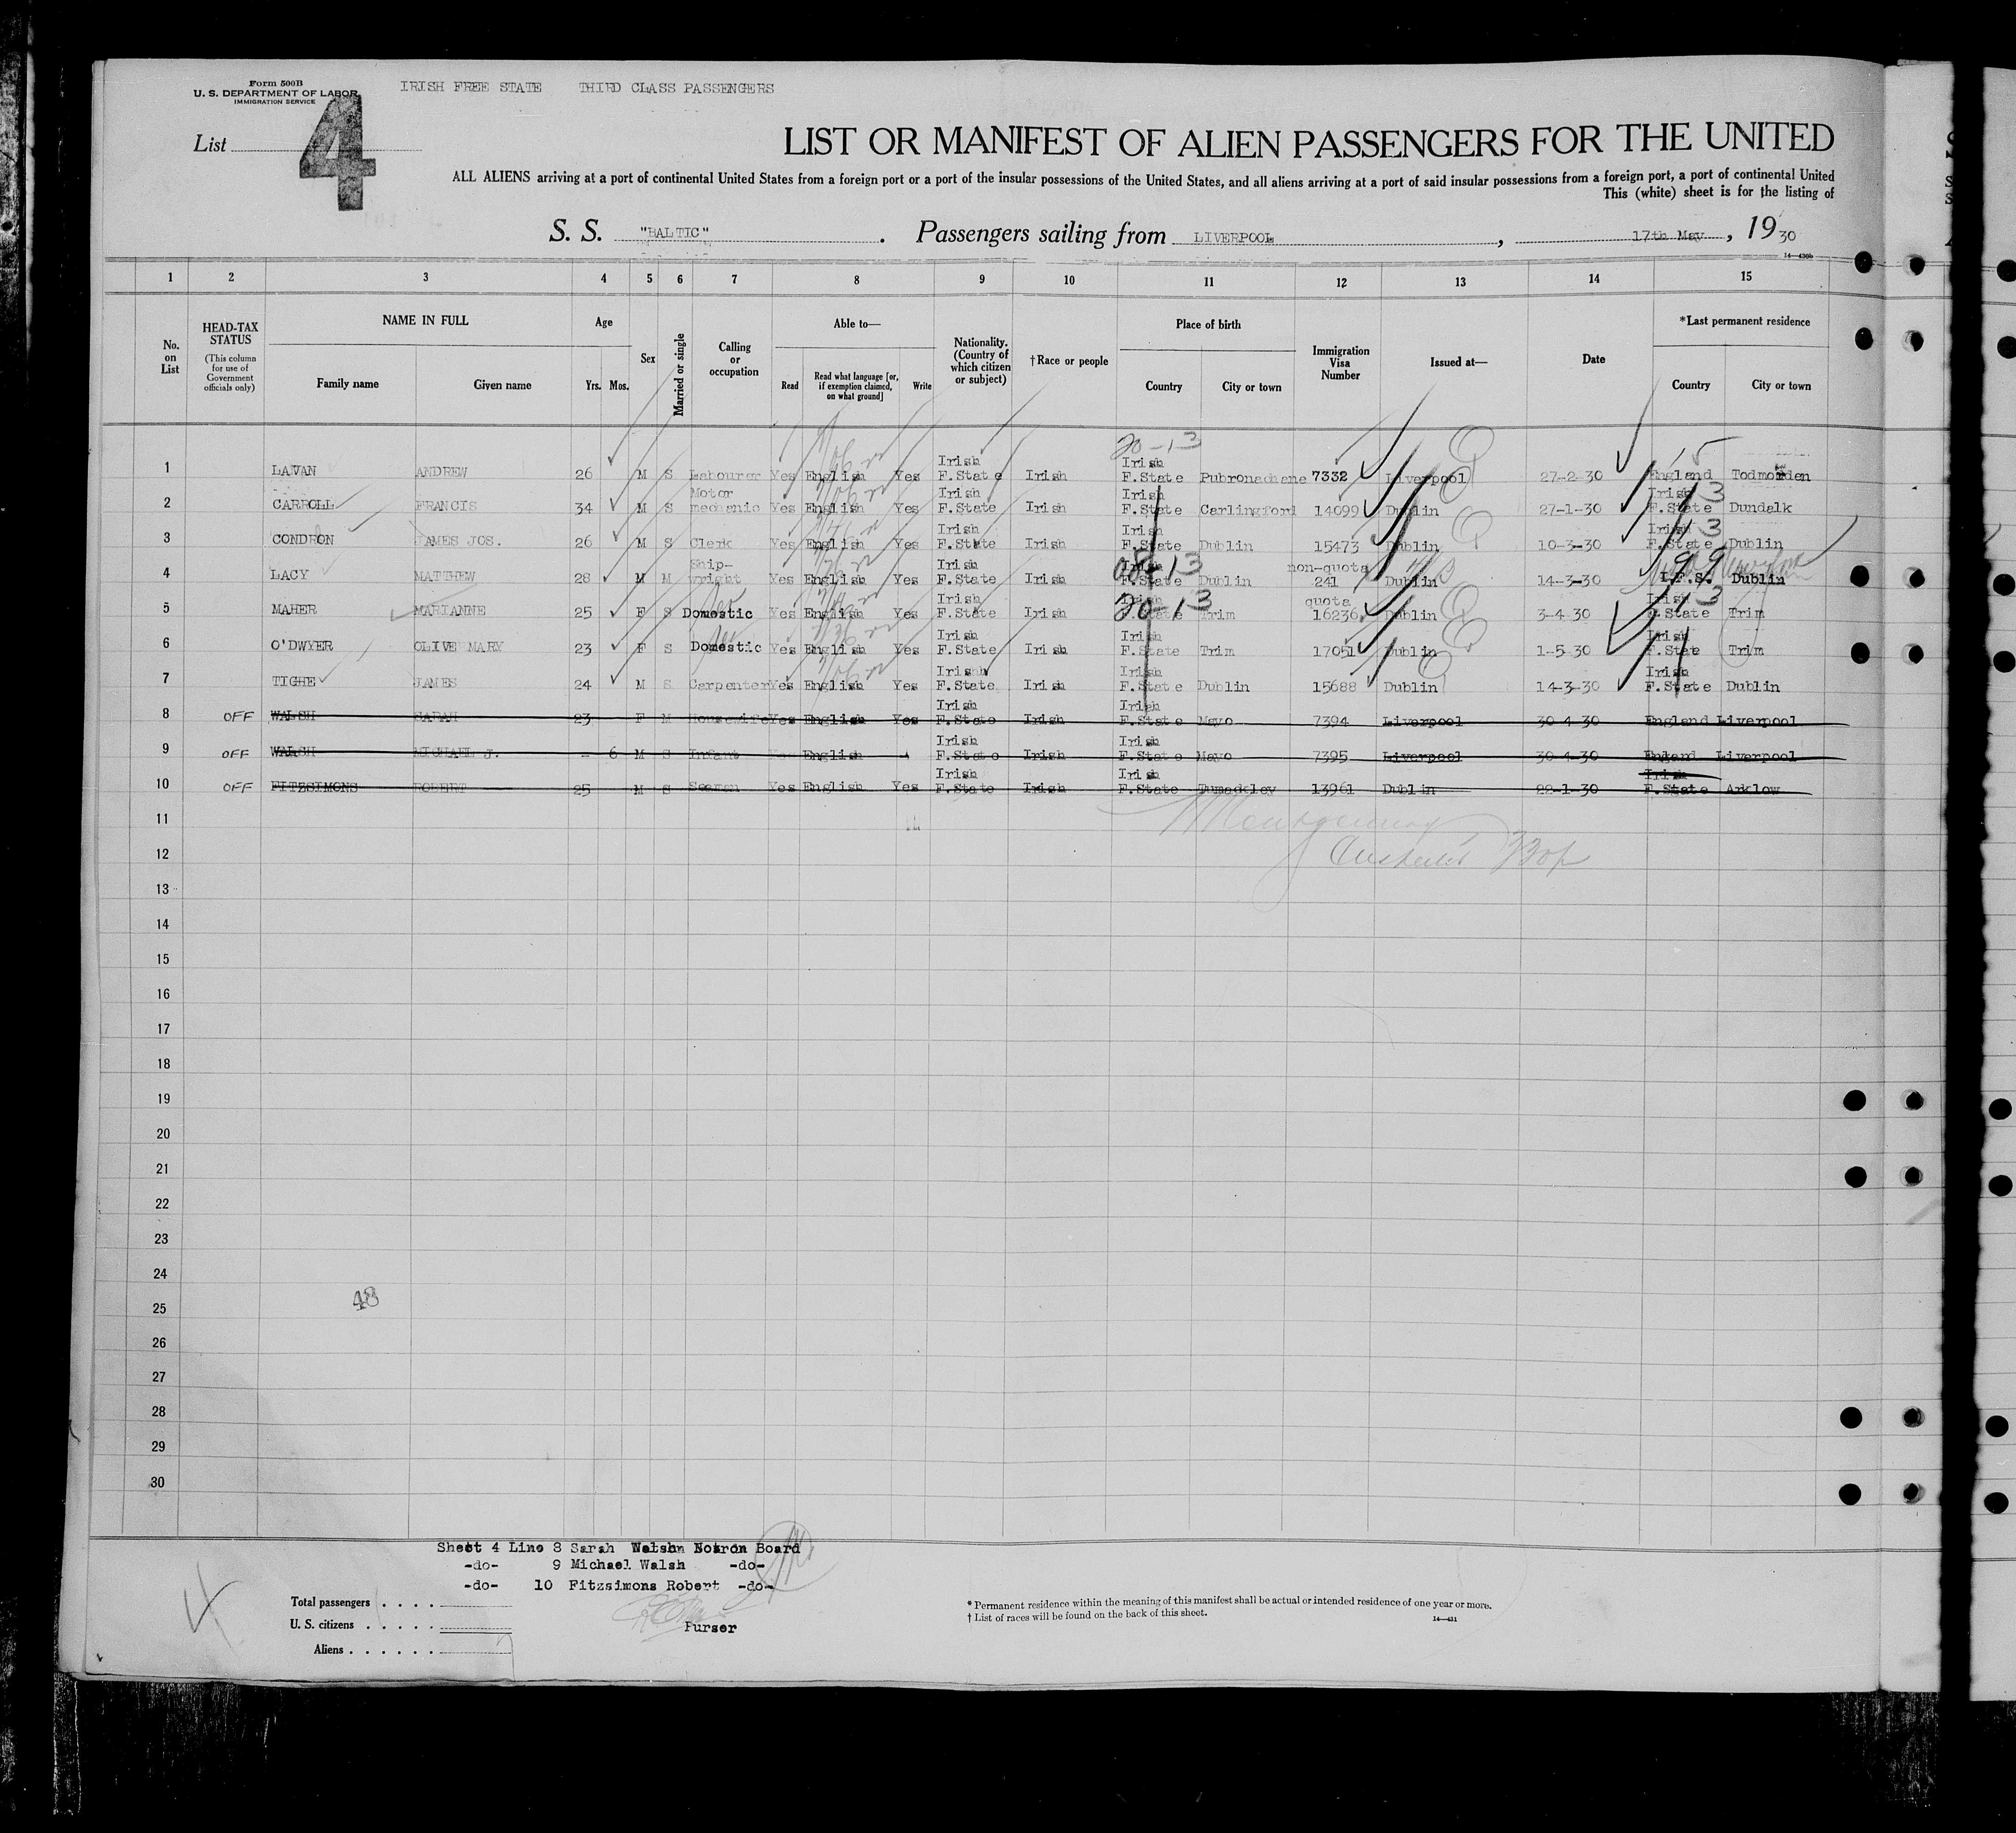 Form 500B
U. S. DEPARTMENT OF LABOR
IMMIGRATION SERVICE
IRISH FREE STATE THIRD CLASS PASSENGERS
List 4
LIST OR MANIFEST OF ALIEN PASSENGERS FOR THE UNITED
ALL ALIENS arriving at a port of continental United States from a foreign port or a port of the insular possessions of the United States, and all aliens arriving at a port of said insular possessions from a foreign port, a port of continental United
This (white) sheet is for the listing of
S. S. "BALTIC". Passengers sailing from LIVERPOOL, 17th May, 1930
14—430b
1 2 3 4 5 6 7 8 9 10 11 12 13 14 15
No. on List
HEAD-TAX STATUS (This column for use of Government officials only)
NAME IN FULL Family name Given name
Age Yrs. Mos.
Sex
Married or single
Calling or occupation
Able to— Read Read what language [or, if exemption claimed, on what ground] Write
Nationality. (Country of which citizen or subject)
†Race or people
Place of birth Country City or town
Immigration Visa Number
Issued at—
Date
*Last permanent residence Country City or town
20-13
1 LAVAN ANDREW 26 M S Labourer Yes English Yes Irish F.State Irish Irish F.State Pubronachane 7332 Liverpool 27-2-30 England Todmorden
2 CARROLL FRANCIS 34 M S Motor mechanic Yes English Yes Irish F.State Irish Irish F.State Carlingford 14099 Dublin 27-1-30 Irish F.State Dundalk
3 CONDRON JAMES JOS. 26 M S Clerk Yes English Yes Irish F.State Irish Irish F.State Dublin 15473 Dublin 10-3-30 Irish F.State Dublin
4 LACY MATTHEW 28 M M Ship-wright Yes English Yes Irish F.State Irish Irish F.State Dublin non-quota 241 Dublin 14-3-30 I.F.S. Dublin
5 MAHER MARIANNE 25 F S Domestic Yes English Yes Irish F.State Irish Irish F.State 20-13 Trim quota 16236 Dublin 3-4-30 Irish F.State Trim
6 O'DWYER OLIVE MARY 23 F S Domestic Yes English Yes Irish F.State Irish Irish F.State Trim 17051 Dublin 1-5-30 Irish F.State Trim
7 TIGHE JAMES 24 M S Carpenter Yes English Yes Irish F.State Irish Irish F.State Dublin 15688 Dublin 14-3-30 Irish F.State Dublin
8 OFF WALSH SARAH 23 F M Housewife Yes English Yes Irish F.State Irish Irish F.State Mayo 7394 Liverpool 30-4-30 England Liverpool
9 OFF WALSH MICHAEL J. - 6 M S Infant English Irish F.State Irish Irish F.State Mayo 7395 Liverpool 30-4-30 England Liverpool
10 OFF FITZSIMONS ROBERT 25 M S Seaman Yes English Yes Irish F.State Irish Irish F.State 13961 Dublin 22-1-30 Irish F.State Arklow
11
12
13
14
15
16
17
18
19
20
21
22
23
24
25
26
27
28
29
30
48
Sheet 4 Line 8 Sarah Walsh Not on Board
-do- 9 Michael Walsh -do-
-do- 10 Fitzsimons Robert -do-
Purser
Total passengers
U. S. citizens
Aliens
* Permanent residence within the meaning of this manifest shall be actual or intended residence of one year or more.
† List of races will be found on the back of this sheet.
14—431